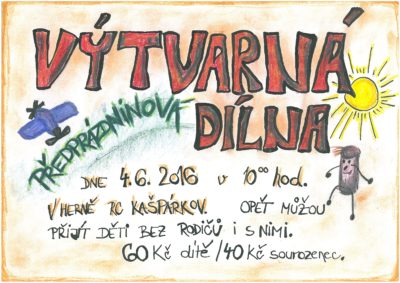 VÝTVARNÁ
PŘEDPRÁZDNINOVÁ
DÍLNA
DNE 4.6. 2016 v 10⁰⁰ hod.
V HERNĚ RC KAŠPÁRKOV. OPĚT MŮŽOU
PŘIJÍT DĚTI BEZ RODIČŮ I S NIMI.
60 Kč dítě / 40 Kč sourozenec.